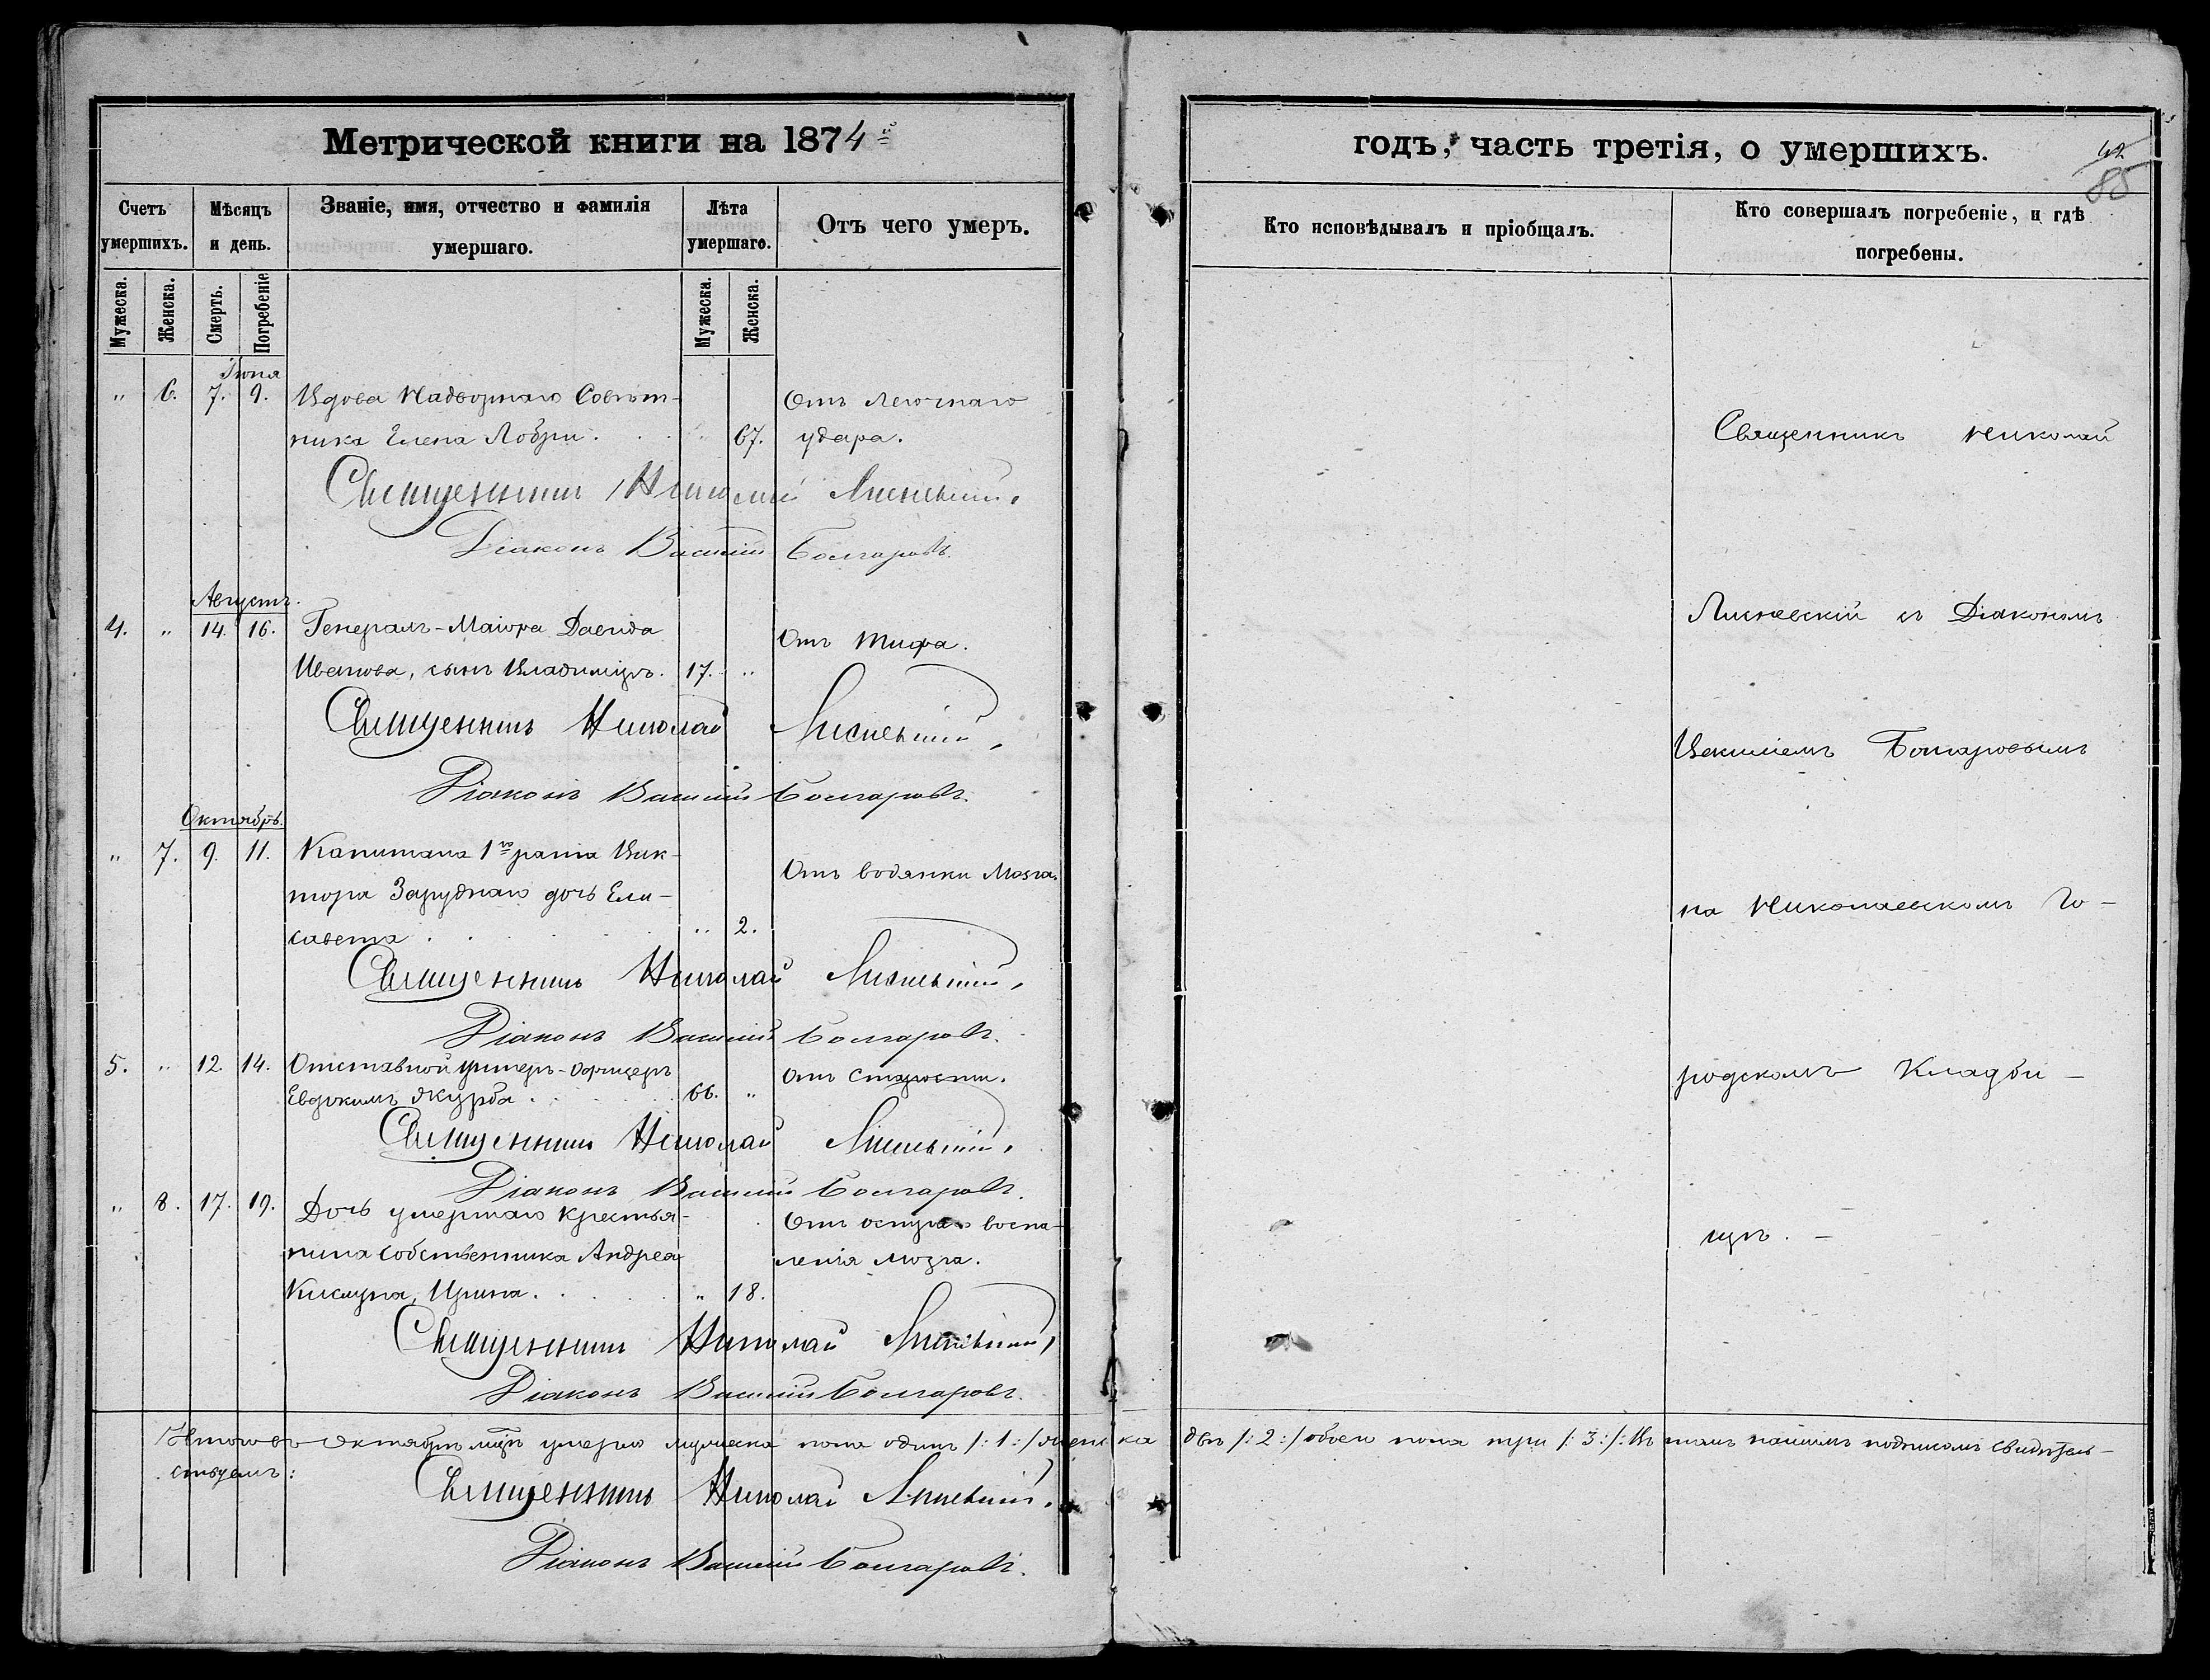 Метрической книги на 1874й
Счетъ умершихъ.
Мѣсяцъ и день.
Званіе, имя, отчество и фамилія умершаго.
Лѣта умершаго.
Отъ чего умеръ.
Мужеска.
Женска.
Смерть.
Погребеніе
Мужеска.
Женска.
Іюня
" 6. 7. 9. Вдова Надворнаго Совѣт- Отъ легочнаго
ника Елена Лобри. " 67. удара.
Священникъ Николай Лисневскій.
Діаконъ Василій Болгаровъ.
Августъ.
4. " 14. 16. Генералъ-Маіора Давида Отъ тифа.
Иванова, сынъ Владиміръ. 17. "
Священникъ Николай Лисневскій.
Діаконъ Василій Болгаровъ.
Октябрь.
" 7. 9. 11. Капитана 1го ранга Вик- Отъ водянки мозга.
тора Заруднаго дочь Ели-
савета " 2.
Священникъ Николай Лисневскій.
Діаконъ Василій Болгаровъ.
5. " 12. 14. Отставной унтеръ-офицеръ Отъ старости.
Евдокимъ Якурба 66. "
Священникъ Николай Лисневскій.
Діаконъ Василій Болгаровъ.
" 8. 17. 19. Дочь умершаго крестья- Отъ остраго воспа-
нина собственника Андрея ленія мозга.
Кислуна, Ирина. " 18.
Священникъ Николай Лисневскій,
Діаконъ Василій Болгаровъ.
Итого въ Октябрѣ мцѣ умерло мужеска пола одинъ /:1:/ женска двѣ /:2:/ обоего пола три /:3:/: Въ томъ нашимъ подписомъ свидѣтель-
ствуемъ:
Священникъ Николай Лисневскій.
Діаконъ Василій Болгаровъ.
годъ, часть третія, о умершихъ.
42
85
Кто исповѣдывалъ и пріобщалъ.
Кто совершалъ погребеніе, и гдѣ погребены.
Священникъ Николай
Лисневскій съ Діакономъ
Василіемъ Болгаровымъ
на Николаевскомъ Го-
родскомъ Кладби-
щѣ. -